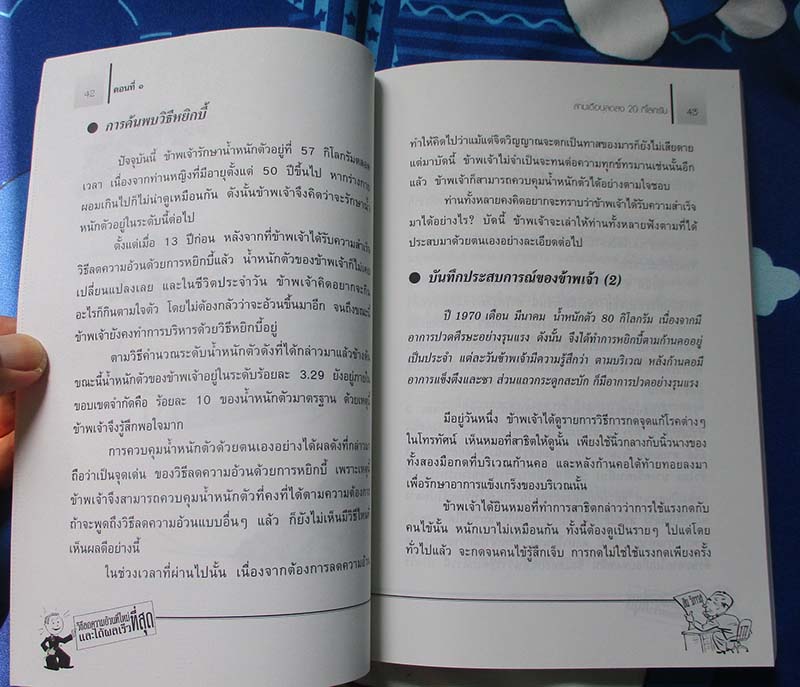 42
ตอนที่ ๑
● การค้นพบวิธีหยิกบี้
ปัจจุบันนี้ ข้าพเจ้ารักษาน้ำหนักตัวอยู่ที่ 57 กิโลกรัมตลอด
เวลา เนื่องจากท่านหญิงที่มีอายุตั้งแต่ 50 ปีขึ้นไป หากร่างกาย
ผอมเกินไปก็ไม่น่าดูเหมือนกัน ดังนั้นข้าพเจ้าจึงคิดว่าจะรักษาน้ำ
หนักตัวอยู่ในระดับนี้ต่อไป
ตั้งแต่เมื่อ 13 ปีก่อน หลังจากที่ข้าพเจ้าได้รับความสำเร็จ
วิธีลดความอ้วนด้วยการหยิกบี้แล้ว น้ำหนักตัวของข้าพเจ้าก็ไม่เคย
เปลี่ยนแปลงเลย และในชีวิตประจำวัน ข้าพเจ้าคิดอยากจะกิน
อะไรก็กินตามใจตัว โดยไม่ต้องกลัวว่าจะอ้วนขึ้นมาอีก จนถึงขณะนี้
ข้าพเจ้ายังคงทำการบริหารด้วยวิธีหยิกบี้อยู่
ตามวิธีคำนวณระดับน้ำหนักตัวดังที่ได้กล่าวมาแล้วข้างต้น
ขณะนี้น้ำหนักตัวของข้าพเจ้าอยู่ในระดับร้อยละ 3.29 ยังอยู่ภายใน
ขอบเขตจำกัดคือ ร้อยละ 10 ของน้ำหนักตัวมาตรฐาน ด้วยเหตุนี้
ข้าพเจ้าจึงรู้สึกพอใจมาก
การควบคุมน้ำหนักตัวด้วยตนเองอย่างได้ผลดังที่กล่าวมา
ถือว่าเป็นจุดเด่น ของวิธีลดความอ้วนด้วยการหยิกบี้ เพราะเหตุนี้
ข้าพเจ้าจึงสามารถควบคุมน้ำหนักตัวที่คงที่ได้ตามความต้องการ
ถ้าจะพูดถึงวิธีลดความอ้วนแบบอื่นๆ แล้ว ก็ยังไม่เห็นมีวิธีไหนที่
เห็นผลดีอย่างนี้
ในช่วงเวลาที่ผ่านไปนั้น เนื่องจากต้องการลดความอ้วน
วิธีลดความอ้วนที่ใหม่
และได้ผลเร็วที่สุด
สามเดือนลดลง 20 กิโลกรัม
43
ทำให้คิดไปว่าแม้แต่จิตวิญญาณจะตกเป็นทาสของมารก็ยังไม่เสียดาย
แต่มาบัดนี้ ข้าพเจ้าไม่จำเป็นจะทนต่อความทุกข์ทรมานเช่นนั้นอีก
แล้ว ข้าพเจ้าก็สามารถควบคุมน้ำหนักตัวได้อย่างตามใจชอบ
ท่านทั้งหลายคงคิดอยากจะทราบว่าข้าพเจ้าได้รับความสำเร็จ
มาได้อย่างไร? บัดนี้ ข้าพเจ้าจะเล่าให้ท่านทั้งหลายฟังตามที่ได้
ประสบมาด้วยตนเองอย่างละเอียดต่อไป
● บันทึกประสบการณ์ของข้าพเจ้า (2)
ปี 1970 เดือน มีนาคม น้ำหนักตัว 80 กิโลกรัม เนื่องจากมี
อาการปวดศีรษะอย่างรุนแรง ดังนั้น จึงได้ทำการหยิกบี้ตามก้านคออยู่
เป็นประจำ แต่ละวันข้าพเจ้ามีความรู้สึกว่า ตามบริเวณ หลังก้านคอมี
อาการแข็งตึงและชา ส่วนแถวกระดูกสะบัก ก็มีอาการปวดอย่างรุนแรง
มีอยู่วันหนึ่ง ข้าพเจ้าได้ดูรายการวิธีการกดจุดแก้โรคต่างๆ
ในโทรทัศน์ เห็นหมอที่สาธิตให้ดูนั้น เพียงใช้นิ้วกลางกับนิ้วนางของ
ทั้งสองมือกดที่บริเวณก้านคอ และหลังก้านคอใต้ท้ายทอยลงมา
เพื่อรักษาอาการแข็งเกร็งของบริเวณนั้น
ข้าพเจ้าได้ยินหมอที่ทำการสาธิตกล่าวว่าการใช้แรงกดกับ
คนไข้นั้น หนักเบาไม่เหมือนกัน ทั้งนี้ต้องดูเป็นรายๆ ไปแต่โดย
ทั่วไปแล้ว จะกดจนคนไข้รู้สึกเจ็บ การกดไม่ใช่ใช้แรงกดเพียงครั้ง